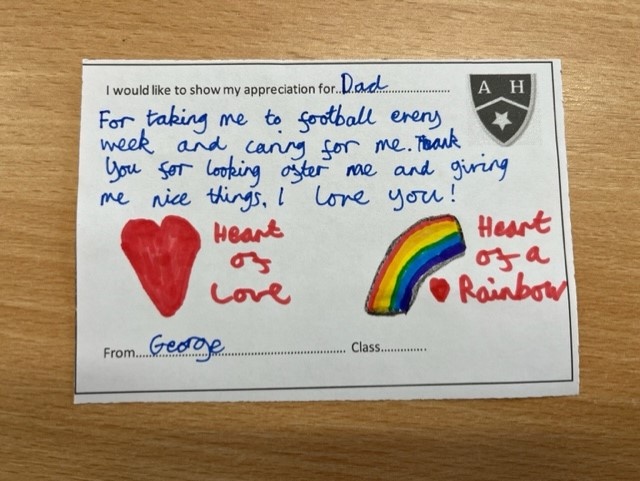 I would like to show my appreciation for..Dad..................
A H
For taking me to football every
week and caring for me. Thank
You for looking after me and giving
me nice things. I love you!
Heart
of
Love
Heart
of a
Rainbow
From....George.......................... Class.............